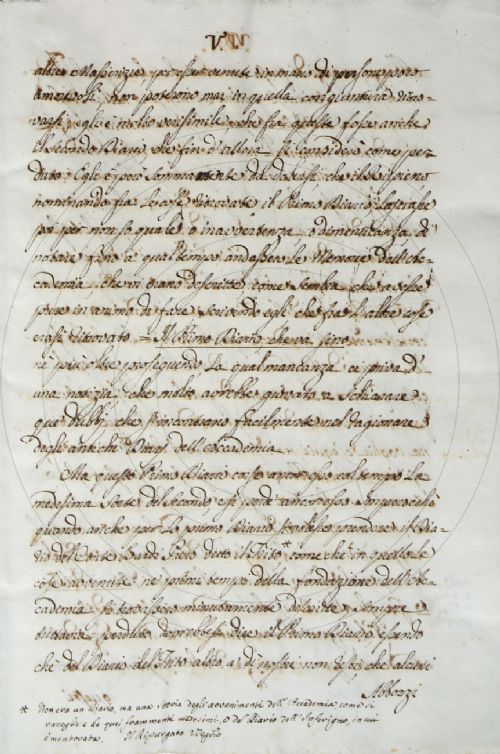 V
altre Masserizie, per esser venute in mano di persone poco
amorevoli, non poterono mai in quella congiuntura ritro-
varsi, egli è molto verisimile, che fra queste fosse anche
il secondo Diario, che fin d'allora si considerò come per-
duto. Cale è poi sommamente da dolersi, che
nominando fra le cose ritrovate il Primo Diario, lasciasse
poi per non so quale o inavvertenza, o dimenticanza di
notare fino a qual tempo andassero le Memorie dell'Ac-
cademia, che vi erano descritte, come sembra, che avesse
pure in animo di fare scrivendo egli che fra l'altre cose
erasi ritrovato = Il Primo Diario, che va fino
nè più oltre proseguendo. La qual mancanza ci priva d'
una notizia, che molto avrebbe giovato a schiarare
que' dubbj, che s'incontrano facilmente nel ragionare
degli antichi Diarj dell'Accademia.
Ma questo Primo Diario corse ancor esso col tempo la
medesima sorte del secondo e si perdè ancor esso. Imperocchè
quando anche per lo primo Diario si volesse prendere il Dia-
rio del Conte Bardi Piero detto il Trito*, come che in quello le
cose avvenute ne' primi tempi della fondazione dell'Ac-
cademia si trovassero minutamente descritte, sempre
tuttavia perduto dovrebbesi dire il Primo Diario, essendo
che del Diario del Trito altro a' dì nostri non resti che alcuni
Abbozzi
* Non era un Diario, ma una Storia degli avvenimenti dell'Accademia come si
raccoglie e da quei frammenti medesimi, e dal Diario dell'Inferigno, in cui
è mentovata. Il Ripurgato